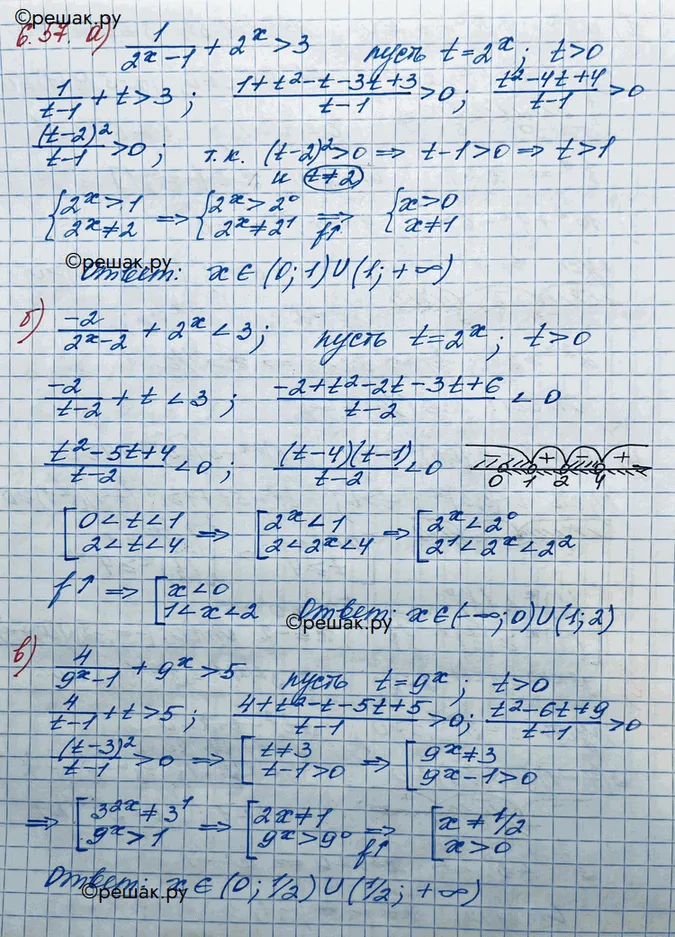 ©решак.ру
6.57. а) 1/(2^x-1) + 2^x > 3 пусть t=2^x; t>0
1/(t-1) + t > 3; (1+t²-t-3t+3)/(t-1) > 0; (t²-4t+4)/(t-1) > 0
(t-2)²/(t-1) > 0; т.к. (t-2)²>0 ⇒ t-1>0 ⇒ t>1
и t≠2
{2^x>1 2^x≠2 ⇒ {2^x>2⁰ 2^x≠2¹ ⇒ f↑ {x>0 x≠1
©решак.ру
Ответ: x∈(0;1)∪(1;+∞)
б) -2/(2^x-2) + 2^x < 3; пусть t=2^x; t>0
-2/(t-2) + t < 3; (-2+t²-2t-3t+6)/(t-2) < 0
(t²-5t+4)/(t-2) < 0; (t-4)(t-1)/(t-2) < 0 - + - +
0 1 2 4
[0<t<1 2<t<4 ⇒ [2^x<1 2<2^x<4 ⇒ [2^x<2⁰ 2¹<2^x<2²
f↑ ⇒ [x<0 1<x<2 Ответ: x∈(-∞;0)∪(1;2)
©решак.ру
в) 4/(9^x-1) + 9^x > 5 пусть t=9^x; t>0
4/(t-1) + t > 5; (4+t²-t-5t+5)/(t-1) > 0; (t²-6t+9)/(t-1) > 0
(t-3)²/(t-1) > 0 ⇒ [t≠3 t-1>0 ⇒ [9^x≠3 9^x-1>0
⇒ [3^2x≠3¹ 9^x>1 ⇒ [2x≠1 9^x>9⁰ ⇒ f↑ [x≠1/2 x>0
Ответ: x∈(0;1/2)∪(1/2;+∞)
©решак.ру